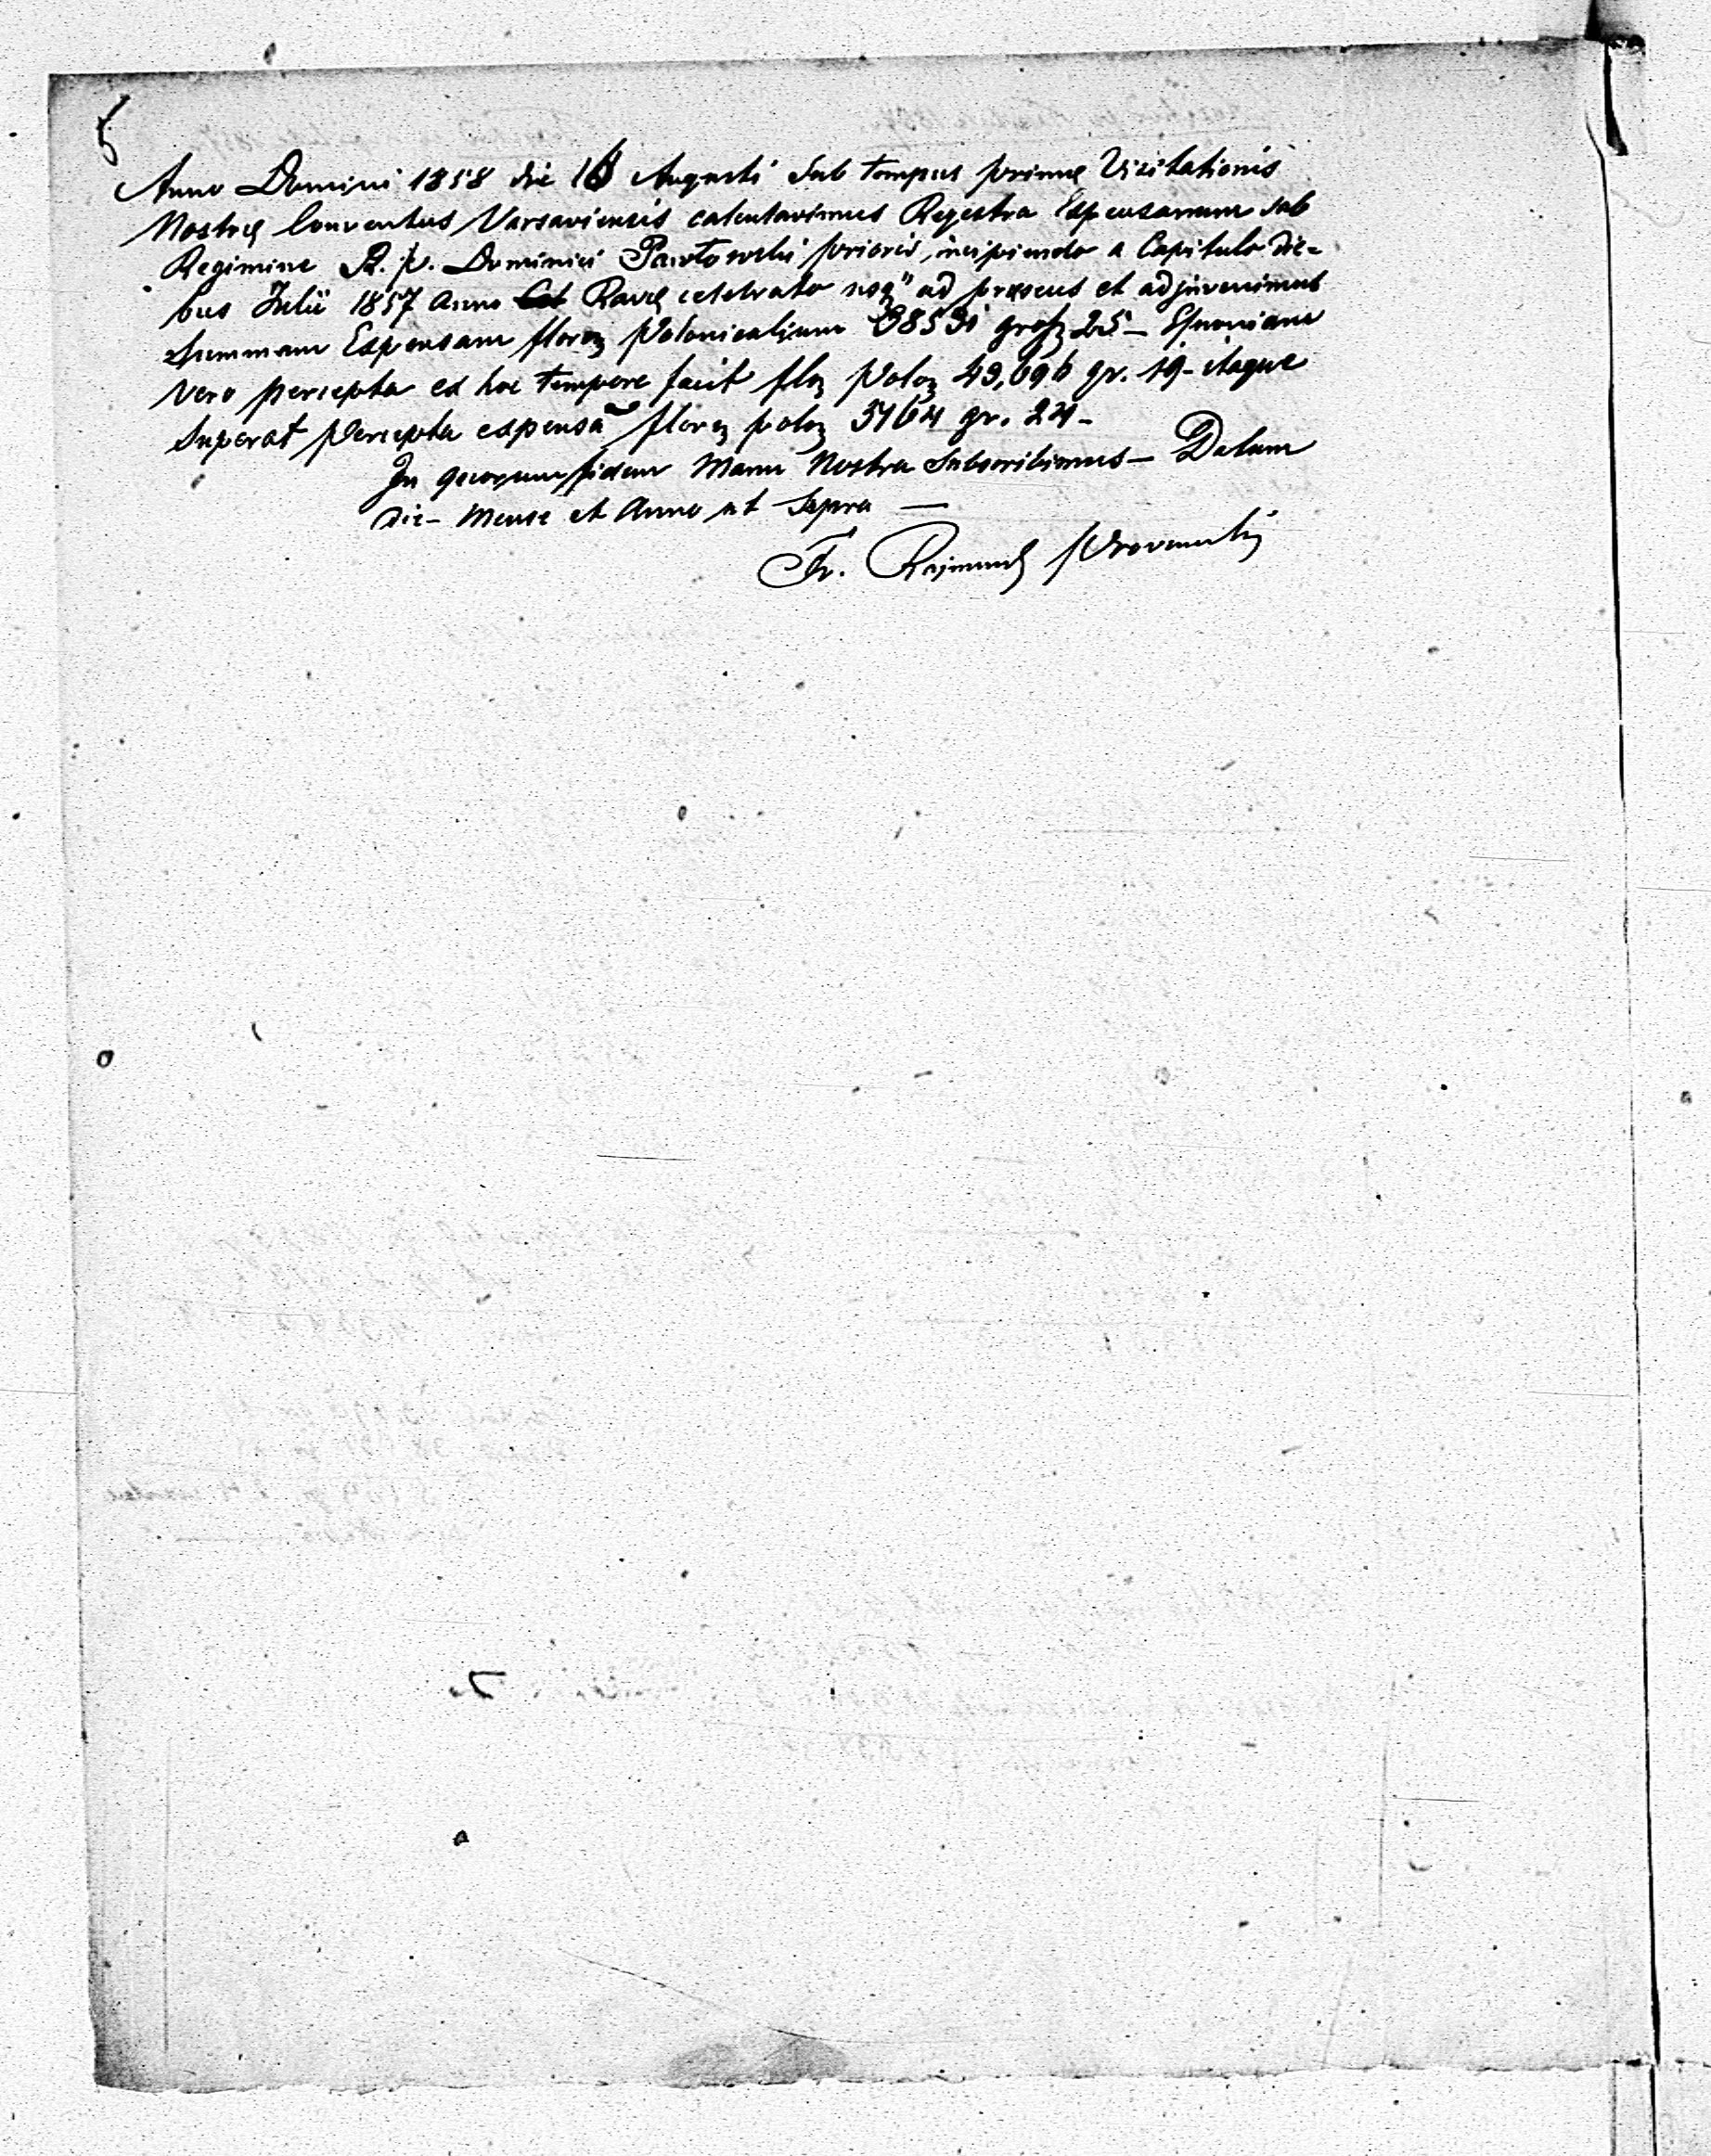 Anno Domini 1858 die 16 Augusti sub tempus primæ Vizitationis
Nostræ Conventus Varsaviensis calculavimus Regestra Expensarum sub
Regimine R. P. Dominici Pawłowski prioris, incipiendo a Capitulo die-
bus Julii 1857 Anno Ravæ celebrato usq" ad præsens et adjnvenimus
Summam Expensam floren Polonicalium 38531 gros 25 –
vero percepta ex hoc tempore facit flo polo 43,696 gr. 19 – itaque
superat Percepta expensa floren polo 5164 gr. 24 –
In quorum fidem Manu Nostra Subscribimus – Datum
die – Mense et Anno ut Supra —
Fr. Rajmund